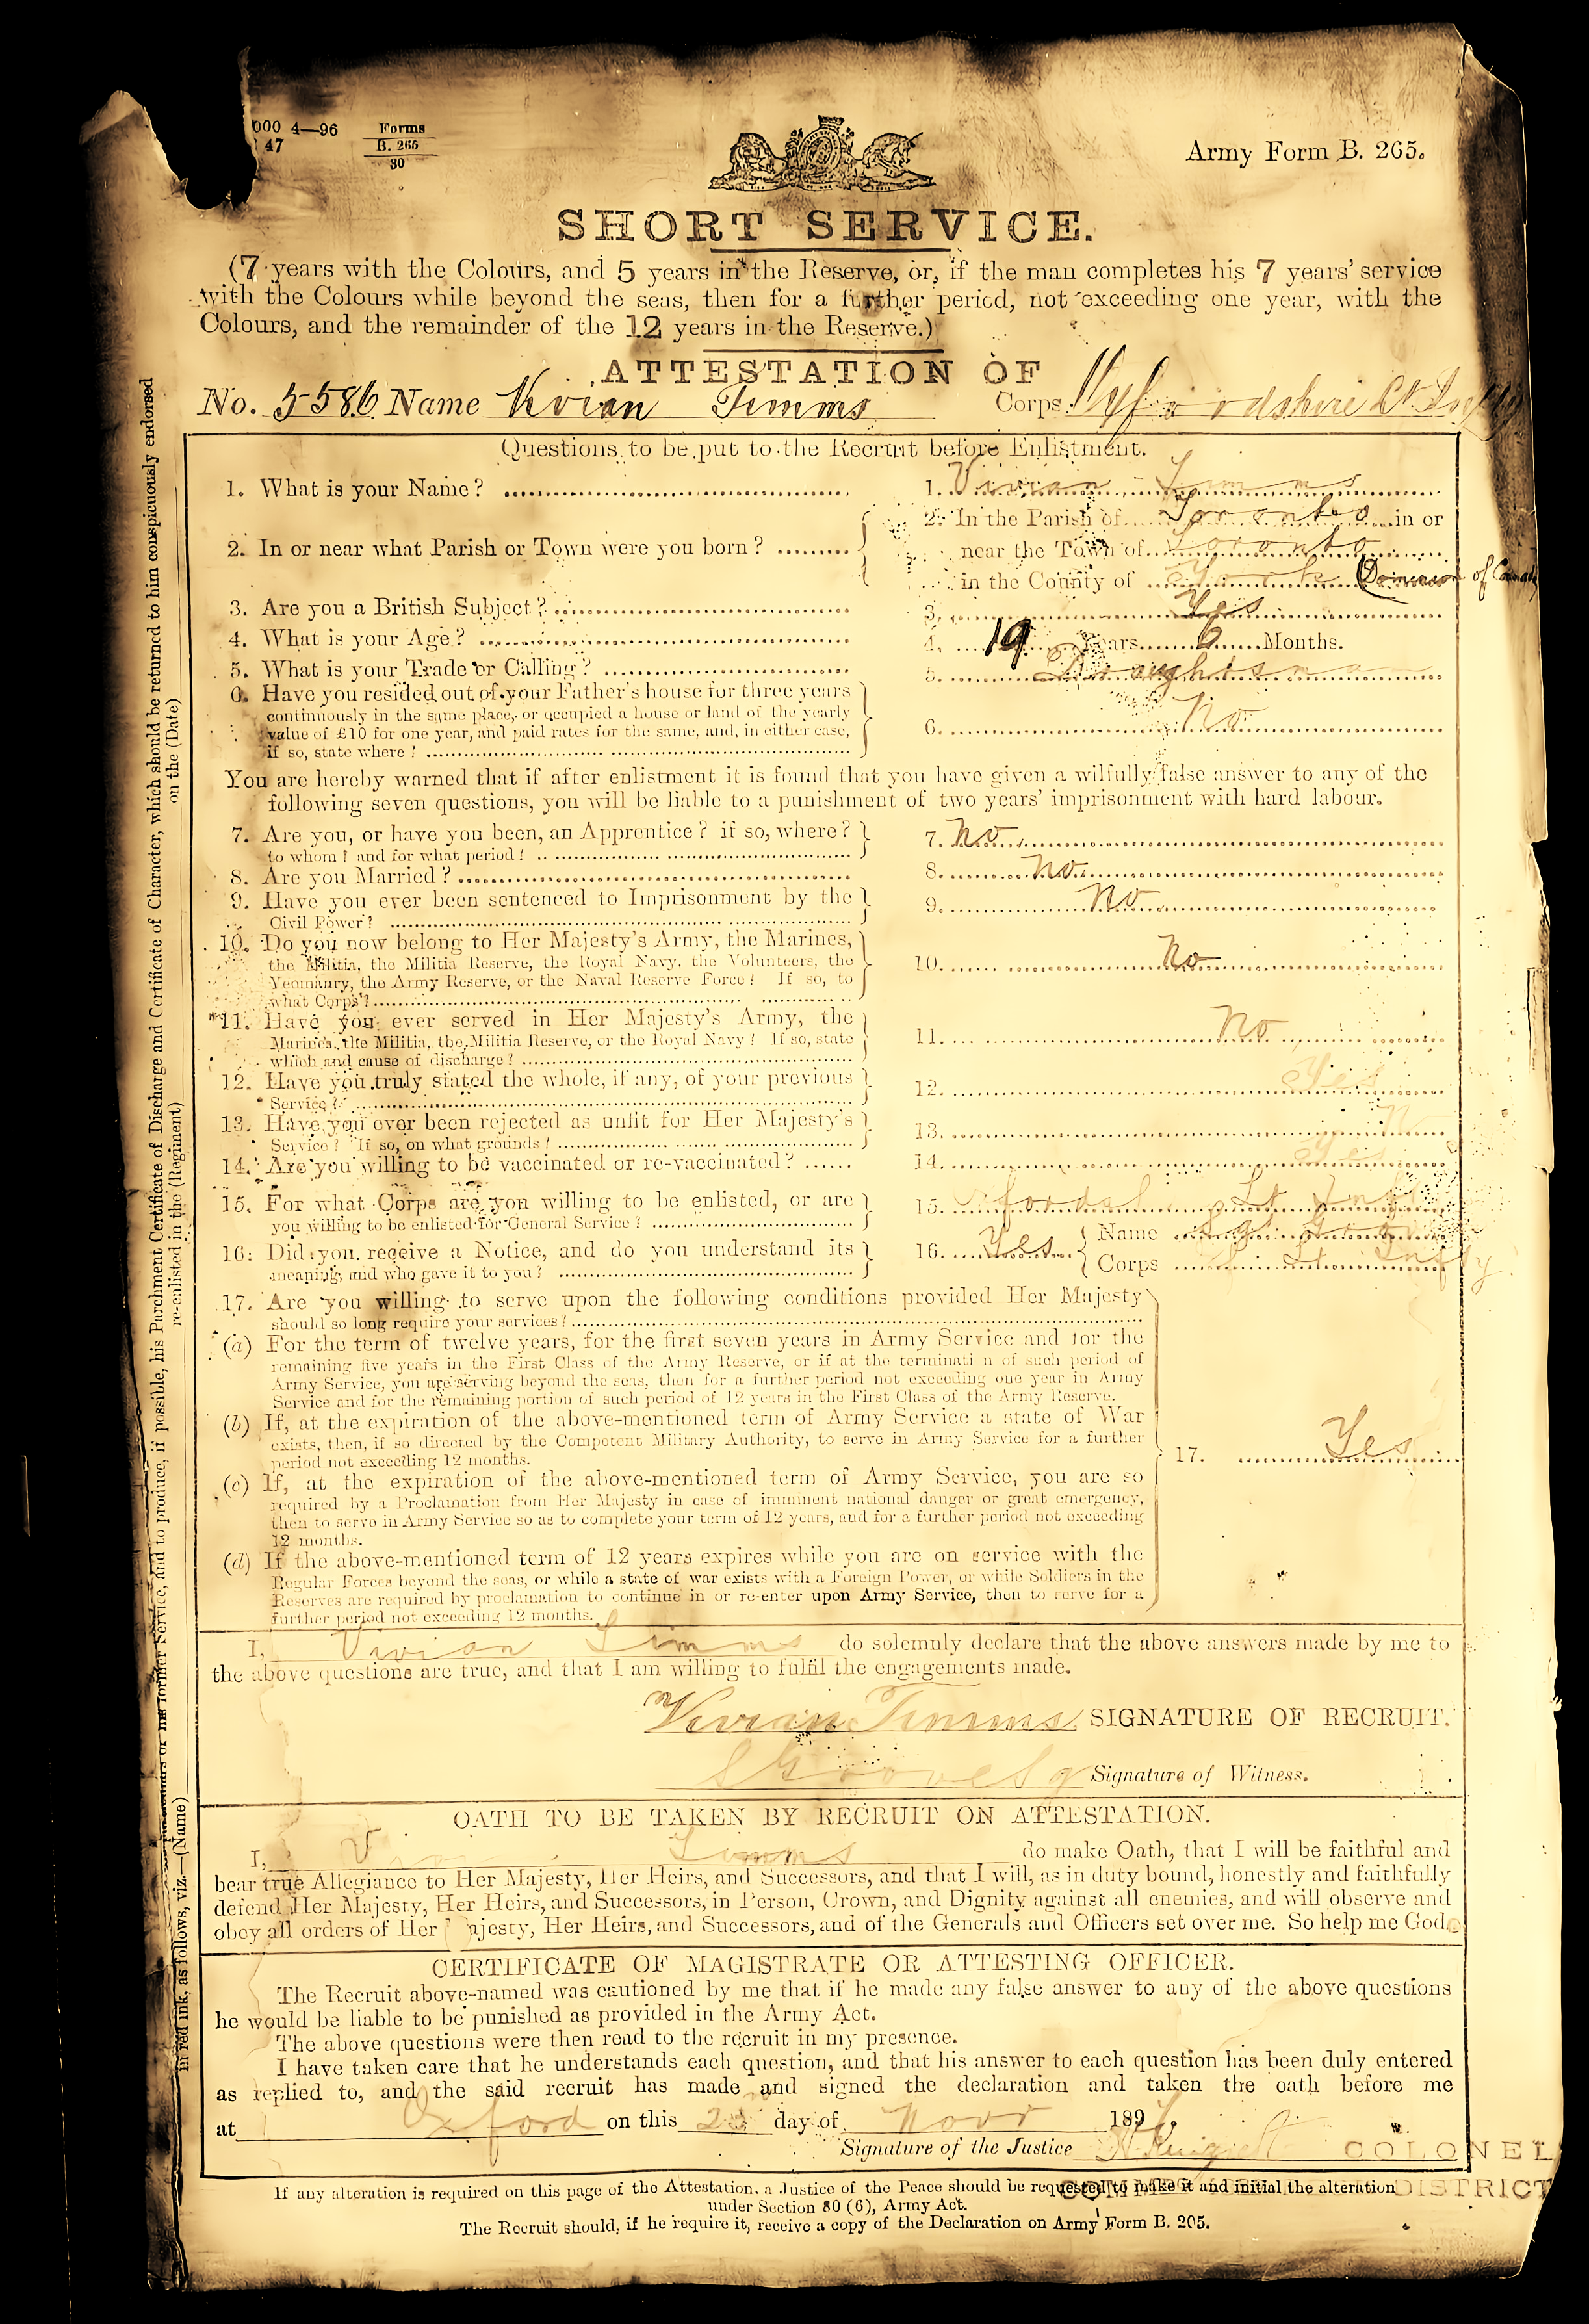 000 4—96 Forms
47 B. 265
80
Army Form B. 265.
SHORT SERVICE.
(7 years with the Colours, and 5 years in the Reserve, or, if the man completes his 7 years' service
with the Colours while beyond the seas, then for a further period, not exceeding one year, with the
Colours, and the remainder of the 12 years in the Reserve.)
ATTESTATION OF
No. 5586 Name Vivian Timms Corps
Questions to be put to the Recruit before Enlistment.
1. What is your Name? 1. Vivian Timms
2. In the Parish of Toronto in or
2. In or near what Parish or Town were you born? near the Town of Toronto
in the County of York (Dominion of Canada
3. Are you a British Subject? 3. Yes
4. What is your Age? 4. 19 Years 6 Months.
5. What is your Trade or Calling? 5. Draughtsman
6. Have you resided out of your Father's house for three years
continuously in the same place, or occupied a house or land of the yearly
value of £10 for one year, and paid rates for the same, and, in either case, 6. No
if so, state where?
You are hereby warned that if after enlistment it is found that you have given a wilfully false answer to any of the
following seven questions, you will be liable to a punishment of two years' imprisonment with hard labour.
7. Are you, or have you been, an Apprentice? if so, where? 7. No
to whom? and for what period?
8. Are you Married? 8. No
9. Have you ever been sentenced to Imprisonment by the 9. No
Civil Power?
10. Do you now belong to Her Majesty's Army, the Marines,
the Militia, the Militia Reserve, the Royal Navy, the Volunteers, the 10. No
Yeomanry, the Army Reserve, or the Naval Reserve Force? If so, to
what Corps?
11. Have you ever served in Her Majesty's Army, the
Marines, the Militia, the Militia Reserve, or the Royal Navy? If so, state 11. No
which and cause of discharge?
12. Have you truly stated the whole, if any, of your previous 12. Yes
Service?
13. Have you ever been rejected as unfit for Her Majesty's 13.
Service? If so, on what grounds?
14. Are you willing to be vaccinated or re-vaccinated? 14. Yes
15. For what Corps are you willing to be enlisted, or are 15. Lt Inf
you willing to be enlisted for General Service?
16. Did you receive a Notice, and do you understand its 16. Yes Name Sgt
meaning, and who gave it to you? Corps Lt Infty
17. Are you willing to serve upon the following conditions provided Her Majesty
should so long require your services?
(a) For the term of twelve years, for the first seven years in Army Service and for the
remaining five years in the First Class of the Army Reserve, or if at the terminati n of such period of
Army Service, you are serving beyond the seas, then for a further period not exceeding one year in Army
Service and for the remaining portion of such period of 12 years in the First Class of the Army Reserve.
(b) If, at the expiration of the above-mentioned term of Army Service a state of War
exists, then, if so directed by the Competent Military Authority, to serve in Army Service for a further
period not exceeding 12 months. 17. Yes
(c) If, at the expiration of the above-mentioned term of Army Service, you are so
required by a Proclamation from Her Majesty in case of imminent national danger or great emergency,
then to serve in Army Service so as to complete your term of 12 years, and for a further period not exceeding
12 months.
(d) If the above-mentioned term of 12 years expires while you are on service with the
Regular Forces beyond the seas, or while a state of war exists with a Foreign Power, or while Soldiers in the
Reserves are required by proclamation to continue in or re-enter upon Army Service, then to serve for a
further period not exceeding 12 months.
I, Vivian Timms do solemnly declare that the above answers made by me to
the above questions are true, and that I am willing to fulfil the engagements made.
Vivian Timms SIGNATURE OF RECRUIT.
Signature of Witness.
OATH TO BE TAKEN BY RECRUIT ON ATTESTATION.
I, V Timms do make Oath, that I will be faithful and
bear true Allegiance to Her Majesty, Her Heirs, and Successors, and that I will, as in duty bound, honestly and faithfully
defend Her Majesty, Her Heirs, and Successors, in Person, Crown, and Dignity against all enemies, and will observe and
obey all orders of Her ajesty, Her Heirs, and Successors, and of the Generals and Officers set over me. So help me God.
CERTIFICATE OF MAGISTRATE OR ATTESTING OFFICER.
The Recruit above-named was cautioned by me that if he made any false answer to any of the above questions
he would be liable to be punished as provided in the Army Act.
The above questions were then read to the recruit in my presence.
I have taken care that he understands each question, and that his answer to each question has been duly entered
as replied to, and the said recruit has made and signed the declaration and taken the oath before me
at Oxford on this day of Novr 189
Signature of the Justice COLONEL
DISTRICT
If any alteration is required on this page of the Attestation, a Justice of the Peace should be requested to make it and initial the alteration
under Section 80 (6), Army Act.
The Recruit should, if he require it, receive a copy of the Declaration on Army Form B. 205.
in red ink, as follows, viz.—(Name) re-enlisted in the (Regiment) on the (Date)
his former Service, and to produce, if possible, his Parchment Certificate of Discharge and Certificate of Character, which should be returned to him conspicuously endorsed